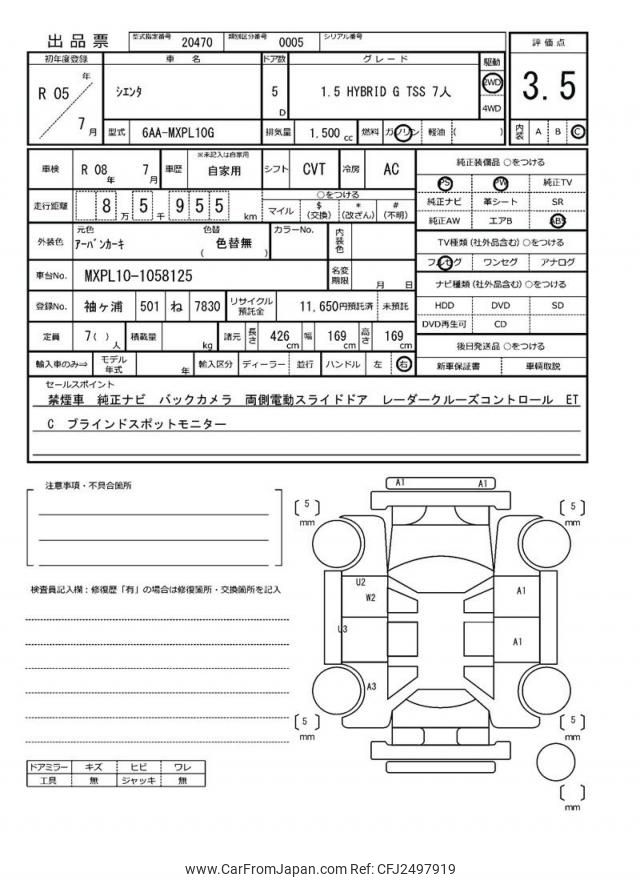 出品票
型式指定番号 20470 類別区分番号 0005 シリアル番号
初年度登録 車名 ドア数 グレード 駆動 評価点
R 05 年 7 月
シエンタ
5 D
1.5 HYBRID G TSS 7人
2WD
4WD
3.5
型式 6AA-MXPL10G 排気量 1.500 cc 燃料 ガソリン 軽油 ( )
内装 A B C
車検 R 08 年 7 月 車歴 ※未記入は自家用 自家用 シフト CVT 冷房 AC
走行距離 8 万 5 千 9 5 5 km
○をつける
マイル $ (交換) * (改ざん) # (不明)
外装色 元色 アーバンカーキ 色替 色替無 ( )
カラーNo. 内装色
車台No. MXPL10-1058125 名変期限 月 日
登録No. 袖ヶ浦 501 ね 7830 リサイクル預託金 11,650円預託済 未預託
定員 7( ) 人 積載量 kg 諸元 長さ 426 cm 幅 169 cm 高さ 169 cm
輸入車のみ⇒ モデル年式 年 輸入区分 ディーラー 並行 ハンドル 左 右
純正装備品 ○をつける
PS PW 純正TV
純正ナビ 革シート SR
純正AW エアB ABS
TV種類(社外品含む)○をつける
フルセグ ワンセグ アナログ
ナビ種類(社外品含む)○をつける
HDD DVD SD
DVD再生可 CD
後日発送品 ○をつける
新車保証書 車輌取説
セールスポイント
禁煙車 純正ナビ バックカメラ 両側電動スライドドア レーダークルーズコントロール ET
C ブラインドスポットモニター
注意事項・不具合箇所
検査員記入欄:修復歴「有」の場合は修復箇所・交換箇所を記入
A1 A1
5 mm
5 mm
U2
W2
A1
U3
A1
A3
5 mm
5 mm
mm
ドアミラー キズ ヒビ ワレ
工具 無 ジャッキ 無
www.CarFromJapan.com Ref: CFJ2497919